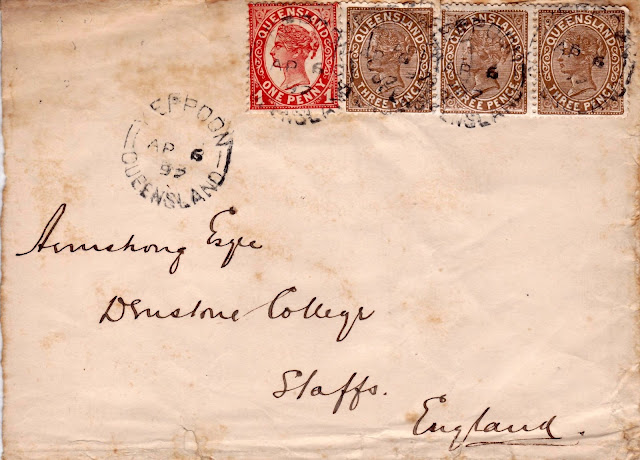 QUEENSLAND
1 ONE PENNY 1
QUEENSLAND
THREE PENCE
QUEENSLAND
THREE PENCE
QUEENSLAND
THREE PENCE
YEPPOON
AP 6
QUEENSLAND
Armstrong Esqre
Denstone College
Staffs.
England.